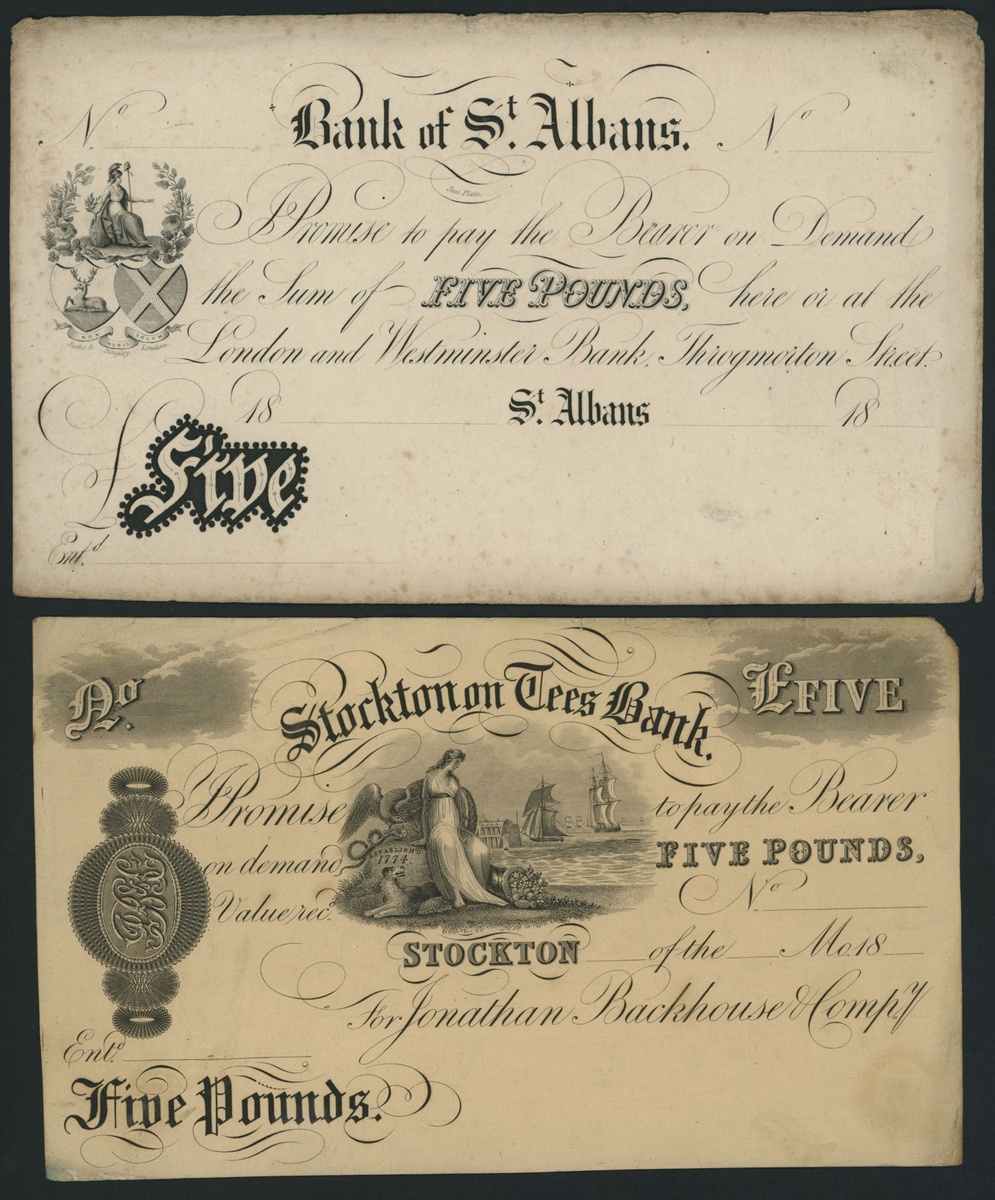 Nº Bank of Sᵗ. Albans. Nº
Steel Plate.
I Promise to pay the Bearer on Demand
the Sum of FIVE POUNDS, here or at the
London and Westminster Bank, Throgmorton Street.
NON NOBIS SOLUM
Bingley London
18 Sᵗ. Albans 18
£ Five
Entᵈ.
Nº. Stockton on Tees Bank. £FIVE
I Promise to pay the Bearer
on demand FIVE POUNDS,
ESTABLISHD
1774
Value recᵈ. Nº
STOCKTON of the Mo. 18
For Jonathan Backhouse & Compʸ
Entᵈ.
Five Pounds.